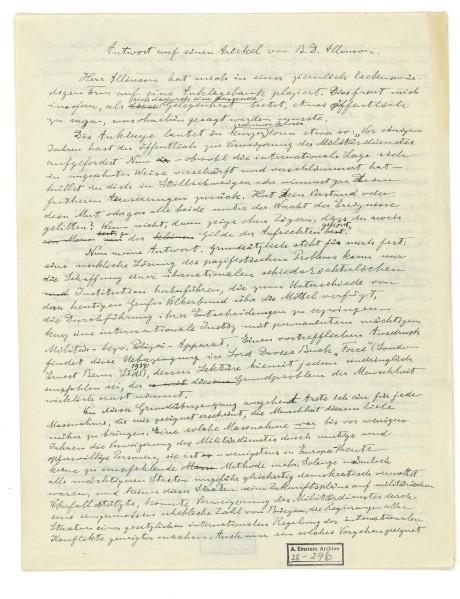 Antwort auf einen Artikel von B. D. Allinson.
Herr Allinson hat mich in einer ziemlich liebenswür-
digen Form auf eine Anklagebank plaziert. Das freut mich
insofern, als sich dadurch eine Gelegenheit bietet, etwas öffentlich
zu sagen, was ohnehin gesagt werden musste.
Die Anklage lautet in kurzer Form etwa so: "Vor einigen
Jahren hast du öffentlich zur Verweigerung des Militärdienstes
aufgefordert. Nun - obwohl die internationale Lage sich
in ungeahnter Weise verschärft und verschlimmert hat -
hüllst du dich in Stillschweigen oder nimmst gar deine
früheren Äusserungen zurück. Hat dein Verstand oder
dein Mut oder gar alle beide unter der Wucht der Ereignisse
gelitten? Wenn nicht, dann zeige ohne Zögern, dass du noch
der Gilde der Aufrechten
Nun meine Antwort. Grundsätzlich steht für mich fest:
eine wirkliche Lösung des pazifistischen Problems kann nur
die Schaffung einer übernationalen schiedsrichterlichen
Institution herbeiführen, die zum Unterschiede von
dem heutigen Genfer Völkerbund über die Mittel verfügt,
die Durchführung ihrer Entscheidungen zu erzwingen -
kurz eine internationale Justiz mit permanentem mächtigem
Militär- bezw. Polizei-Apparat. Einen vortrefflichen Ausdruck
findet diese Ueberzeugung in Lord Davies Buch "Force" (London
Ernest Benn Ltd. 1934), dessen Lektüre hiemit jedem eindringlich
empfohlen sei, der es mit diesem Grundproblem der Menschheit
wirklich ernst nimmt.
Von dieser Grundüberzeugung ausgehend trete ich ein für jede
Massnahme, die mir geeignet erscheint, die Menschheit diesem Ziele
näher zu bringen. Eine solche Massnahme war bis vor wenigen
Jahren die Verweigerung des Militärdienstes durch mutige und
opferwillige Personen; sie ist - wenigstens in Europa - heute
keine zu empfehlende Methode mehr. Solange nämlich
alle mächtigen Staaten ungefähr gleichartig demokratisch verwaltet
waren, und keiner dieser Staaten seine Zukunftspläne auf militärischen
Überfall stützte, konnte Verweigerung des Militärdienstes durch
eine einigermassen erhebliche Zahl von Bürgern, die Regierungen aller
Staaten einer gesetzlichen internationalen Regelung der internationalen
Konflikte geneigter machen. Auch war ein solches Vorgehen geeignet
A. Einstein Archive
28-296